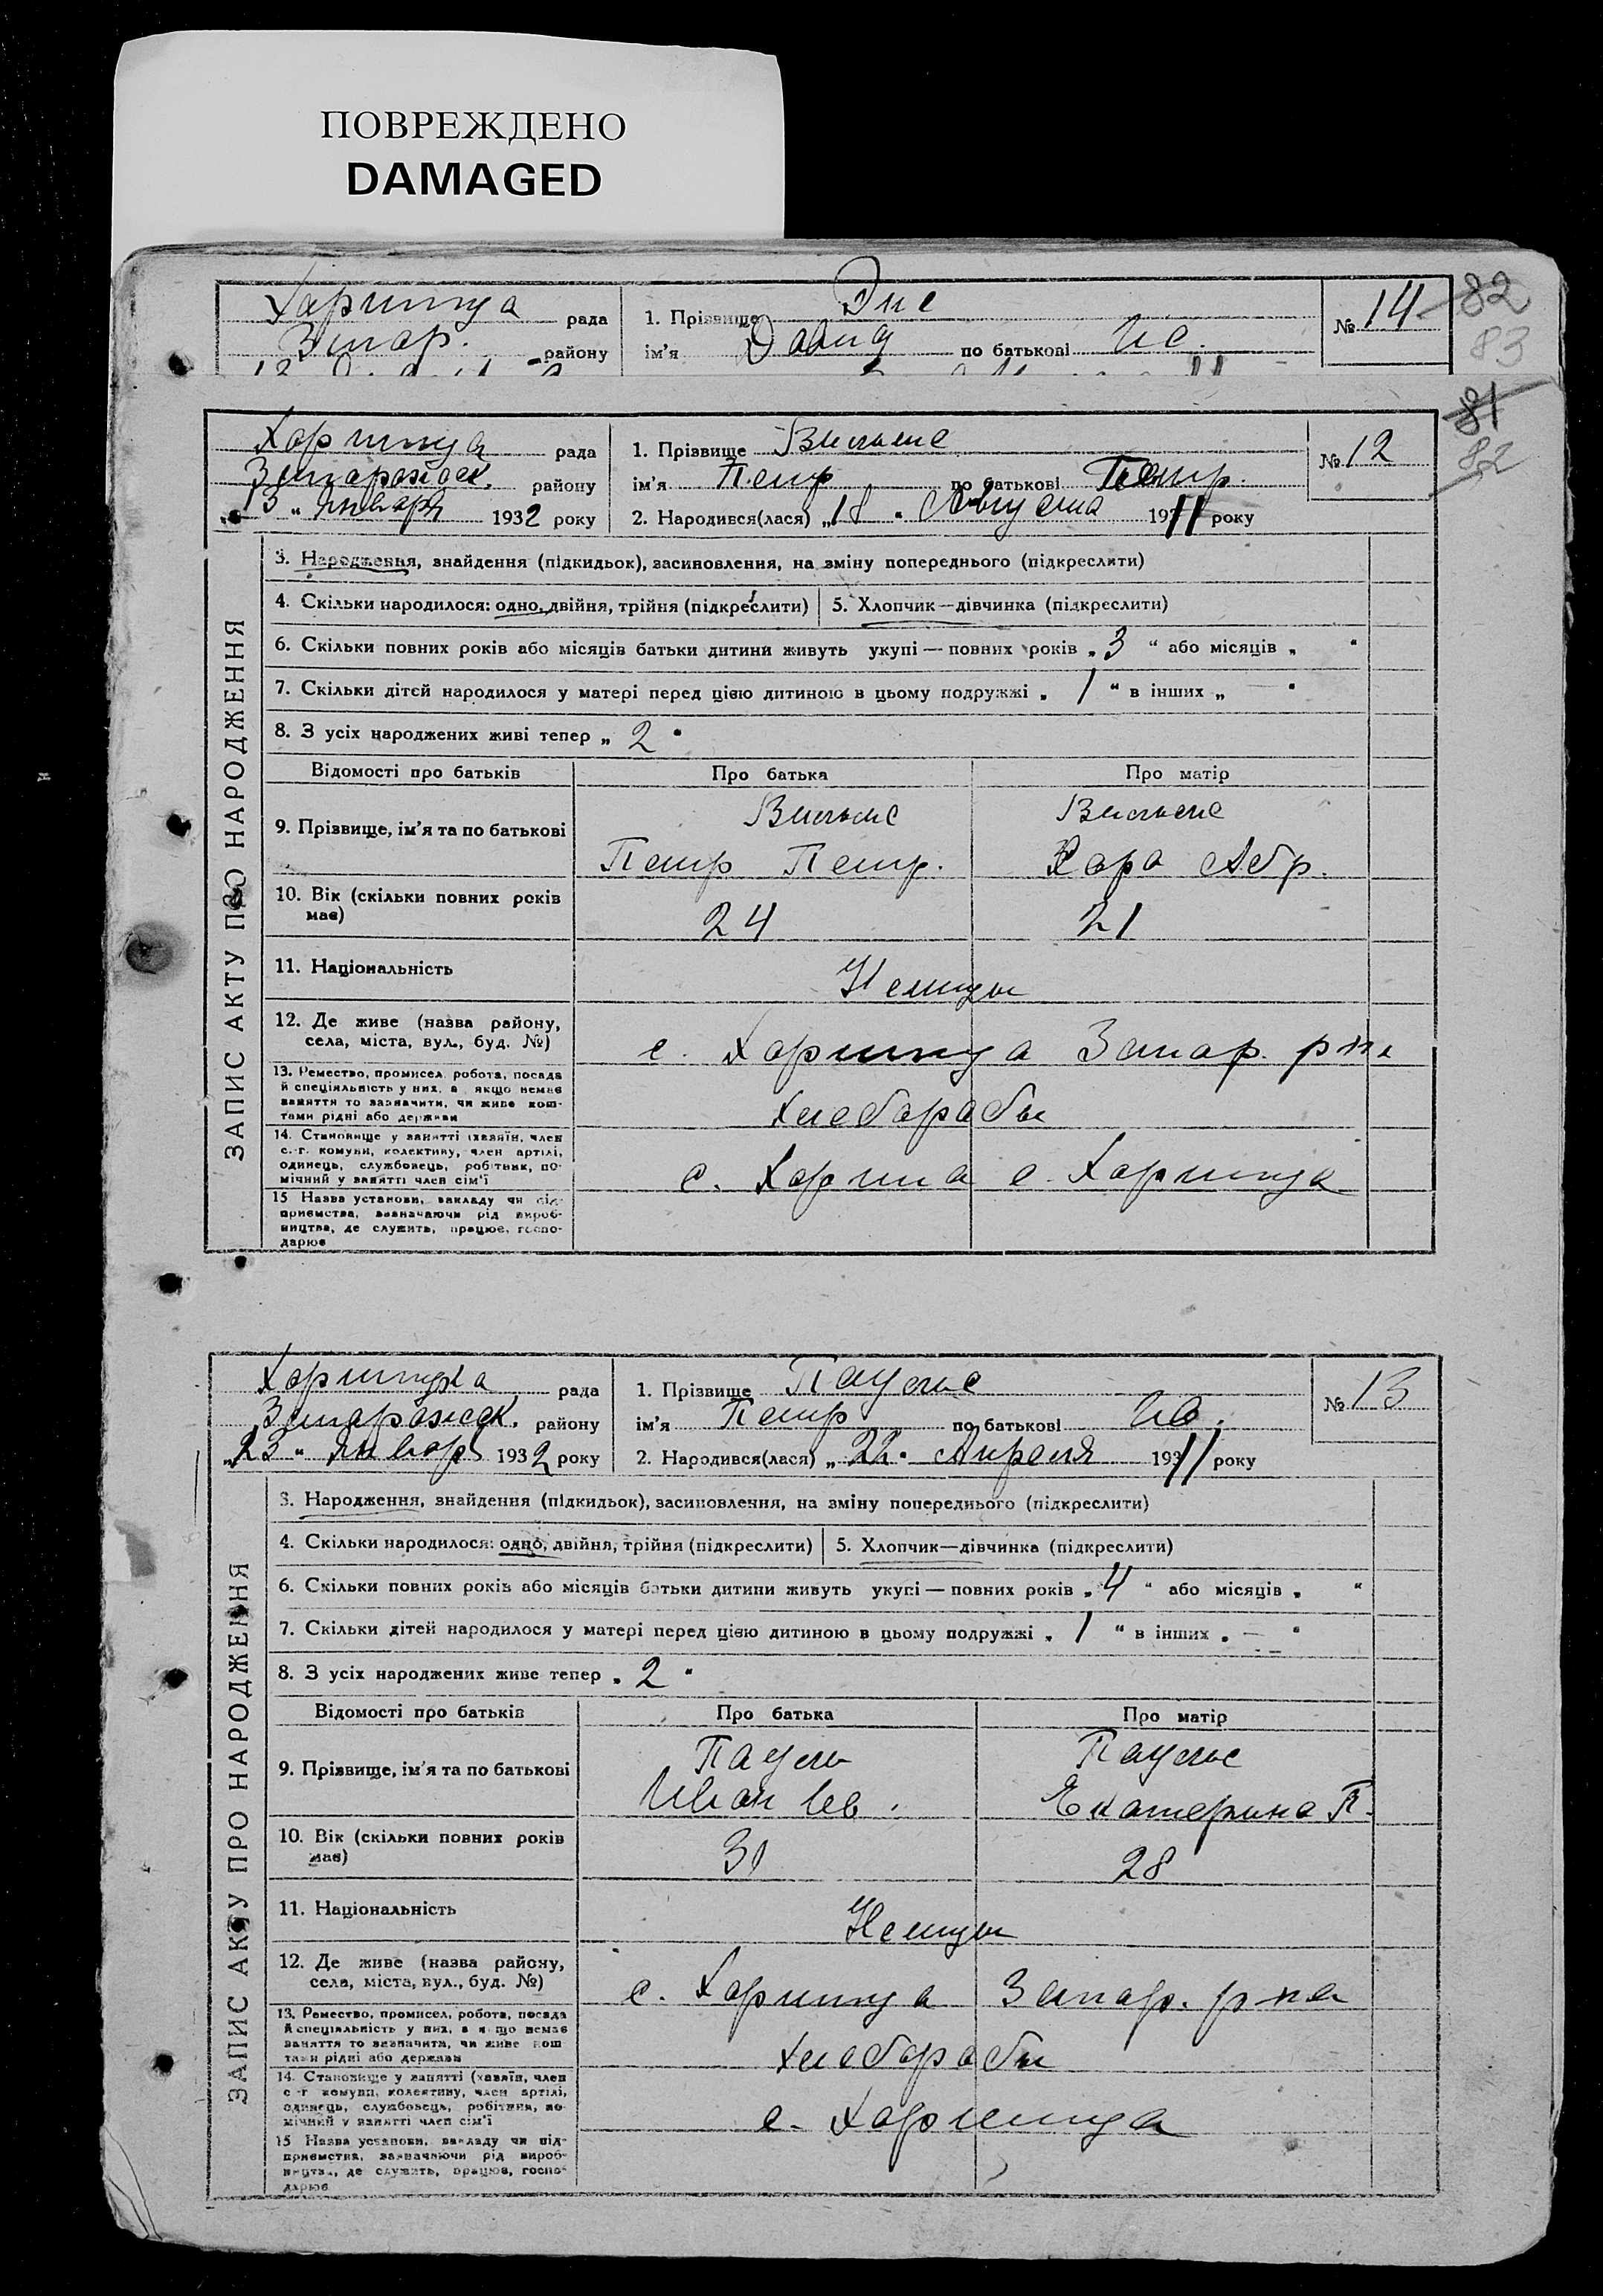 ПОВРЕЖДЕНО
DAMAGED
рада 1. Прізвище Дик № 14 82
Запор. району ім'я Давид по батькові Ис. 83
81
рада 1. Прізвище Вильмс № 12 82
району ім'я Петр по батькові Петр.
"13" января 1932 року 2. Народився(лася) "18" Августа 1911 року
ЗАПИС АКТУ ПРО НАРОДЖЕННЯ
3. Народження, знайдення (підкидьок), засиновлення, на зміну попереднього (підкреслити)
4. Скільки народилося: одно, двійня, трійня (підкреслити) 5. Хлопчик—дівчинка (підкреслити)
6. Скільки повних років або місяців батьки дитини живуть укупі — повних років „3“ або місяців „ “
7. Скільки дітей народилося у матері перед цією дитиною в цьому подружжі „1“ в інших „—“
8. З усіх народжених живі тепер „2“
Відомості про батьків Про батька Про матір
9. Прізвище, ім'я та по батькові Вильмс Вильмс
Петр Петр. Сара Абр.
10. Вік (скільки повних років має) 24 21
11. Національність Немцы
12. Де живе (назва району, села, міста, вул., буд. №) с. Хортица Запор. р-на
13. Ремество, промисел, робота, посада й спеціяльність у них, а якщо немає заняття то зазначити, чи живе коштами рідні або держави хлеборобы
14. Становище у занятті (хазяїн, член с.-г. комуни, колективу, член артілі, одинець, службовець, робітник, помічний у занятті член сім'ї с. с. Хортица
15 Назва установи, закладу чи підприємства, зазначаючи рід виробництва, де служить, працює, господарює
рада 1. Прізвище Паульс № 13
району ім'я Петр по батькові Ив.
„23“ январ 1932 року 2. Народився(лася) „22“ Апреля 1911 року
ЗАПИС АКТУ ПРО НАРОДЖЕННЯ
3. Народження, знайдення (підкидьок), засиновлення, на зміну попереднього (підкреслити)
4. Скільки народилося: одно, двійня, трійня (підкреслити) 5. Хлопчик—дівчинка (підкреслити)
6. Скільки повних років або місяців батьки дитини живуть укупі — повних років „4“ або місяців „ “
7. Скільки дітей народилося у матері перед цією дитиною в цьому подружжі „1“ в інших „—“
8. З усіх народжених живе тепер „2“
Відомості про батьків Про батька Про матір
9. Прізвище, ім'я та по батькові Пауль Паульс
Иван Ив. Екатерина П.
10. Вік (скільки повних років має) 31 28
11. Національність Немцы
12. Де живе (назва району, села, міста, вул., буд. №) с. Хортица Запор. р-на
13. Ремество, промисел, робота, посада й спеціяльність у них, а якщо немає заняття то зазначити, чи живе коштами рідні або держави хлеборобы
14. Становище у занятті (хазяїн, член с.-г. комуни, колективу, член артілі, одинець, службовець, робітник, помічний у занятті член сім'ї с. Хортица
15 Назва установи, закладу чи підприємства, зазначаючи рід виробництва, де служить, працює, господарює